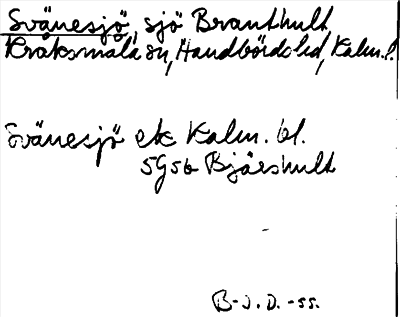 Svänesjö, sjö Branthult
Kråksmåla sn, Handbörds hd, Kalm. l.
Svänesjö ek Kalm. bl.
5G5b Bjärshult
B-J.D.-55.